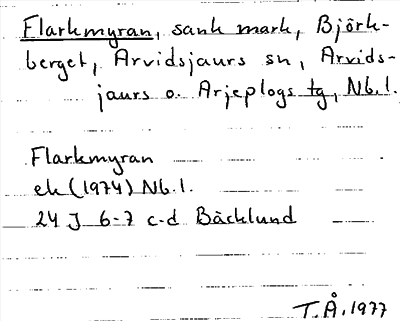 Flarkmyran, sank mark, Björk-
berget, Arvidsjaurs sn, Arvids-
jaurs o. Arjeplogs tg, Nb.l.
Flarkmyran
ek (1974) Nb.l.
24 J 6-7 c-d Bäcklund
T.Å. 1977